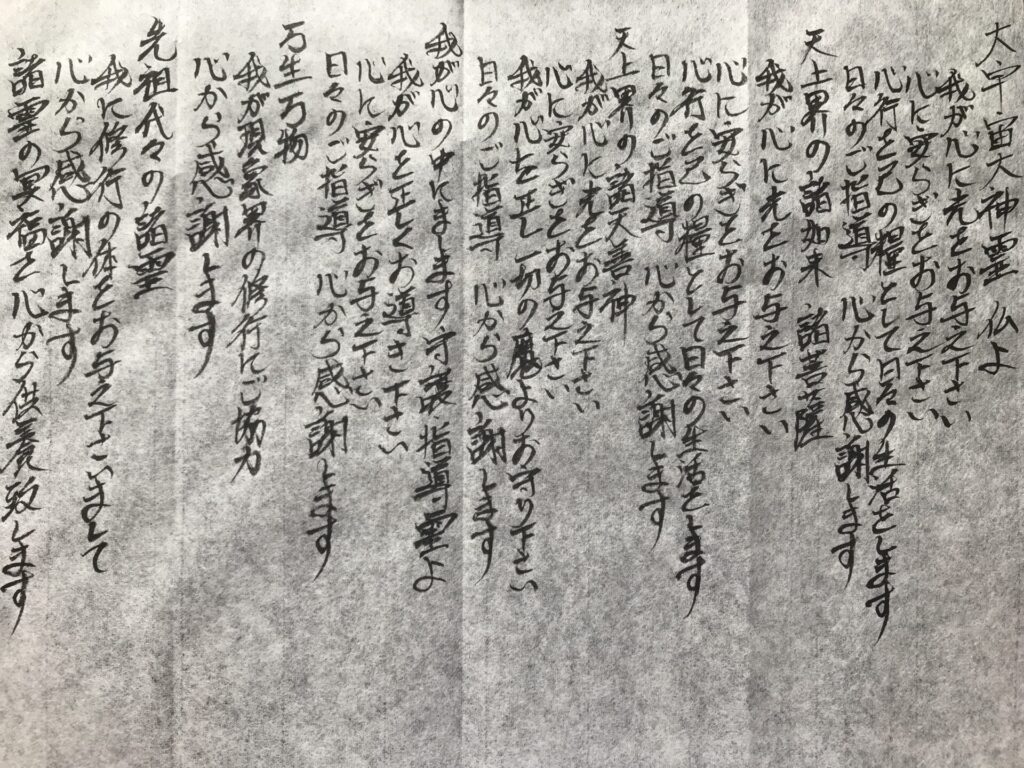 大宇宙大神霊 仏よ
我が心に光をお与え下さい
心に安らぎをお与え下さい
心行を己の糧として日々の生活をします
日々のご指導 心から感謝します
天上界の諸如来 諸菩薩
我が心に光をお与え下さい
心に安らぎをお与え下さい
心行を己の糧として日々の生活をします
日々のご指導 心から感謝します
天上界の諸天善神
我が心に光をお与え下さい
心に安らぎをお与え下さい
我が心を正し 一切の魔よりお守り下さい
日々のご指導 心から感謝します
我が心の中にまします 守護・指導霊よ
我が心を正しくお導き下さい
心に安らぎをお与え下さい
日々のご指導 心から感謝します
万生万物
我が現象界の修行にご協力
心から感謝します
先祖代々の諸霊
我に修行の体をお与え下さいまして
心から感謝します
諸霊の冥福を心から供養致します